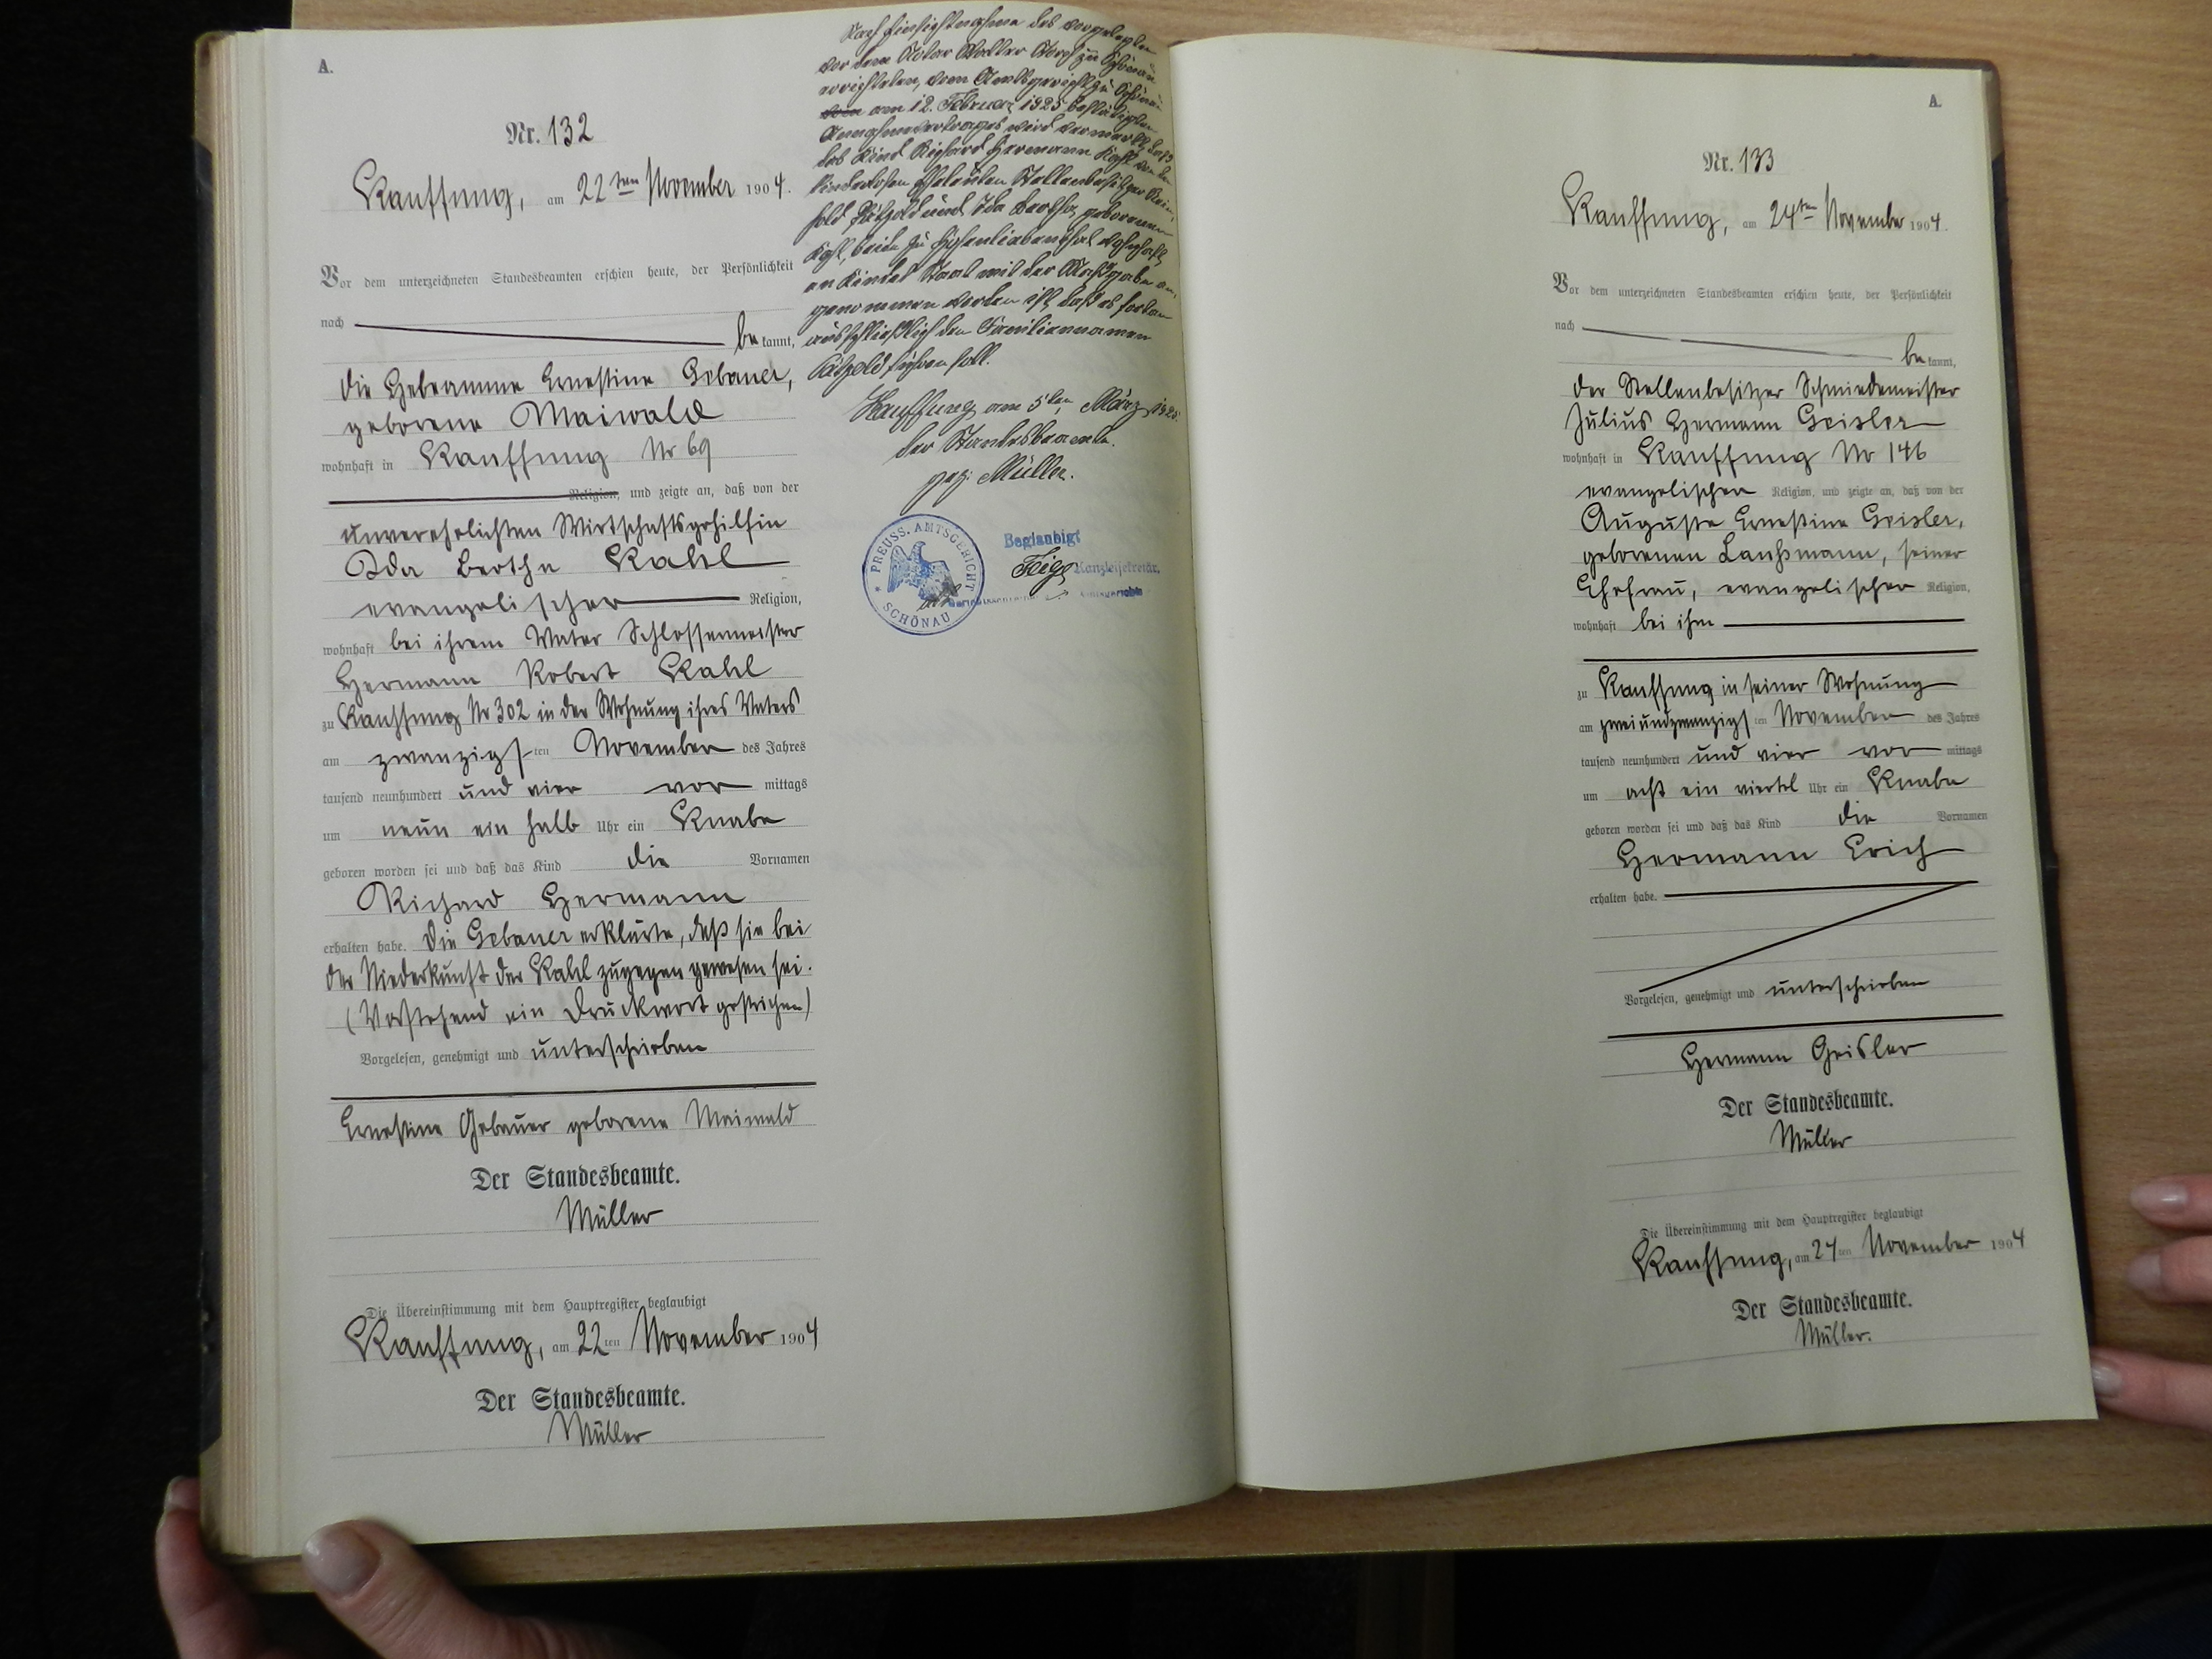 A.
Nr. 132
Kauffung, am 22ten November 1904.
Vor dem unterzeichneten Standesbeamten erschien heute, der Persönlichkeit
nach bekannt,
die Hebeamme Ernestine Gebauer,
geborene Maiwald
wohnhaft in Kauffung Nr 69
Religion, und zeigte an, daß von der
unverehelichten Wirtschaftsgehilfin
Ida Bertha Kahl
evangelischer Religion,
wohnhaft bei ihrem Vater Schlossermeister
Hermann Robert Kahl
zu Kauffung Nr 302 in der Wohnung ihres Vaters
am zwanzigsten November des Jahres
tausend neunhundert und vier vor mittags
um neun ein halb Uhr ein Knabe
geboren worden sei und daß das Kind die Vornamen
Richard Hermann
erhalten habe. Die Gebauer erklärte, daß sie bei
der Niederkunft der Kahl zugegen gewesen sei.
(Vorstehend ein Druckwort gestrichen)
Vorgelesen, genehmigt und unterschrieben
Ernestine Gebauer geborene Maiwald
Der Standesbeamte.
Müller
Die Übereinstimmung mit dem Hauptregister beglaubigt
Kauffung, am 22ten November 1904
Der Standesbeamte.
Müller
Nach Einsichtnahme des vorgelegten
vor dem Notar Walter Storch zu Schönau
errichteten, vom Amtsgericht zu Schönau
am 12. Februar 1925 bestätigten
Annahmevertrages wird vermerkt, daß
das Kind Richard Hermann Kahl von den
kinderlosen Eheleuten Stellenbesitzer Rein-
hold Pätzold und Ida Bertha geborenen
Kahl, beide zu Hohenliebenthal wohnhaft,
an Kindes Statt mit der Maßgabe an-
genommen worden ist, daß es fortan
ausschließlich den Familiennamen
Pätzold führen soll.
Kauffung am 5ten März 1925.
Der Standesbeamte.
gez. Müller.
PREUSS. AMTSGERICHT
SCHÖNAU
Beglaubigt
Kanzleisekretär.
A.
Nr. 133
Kauffung, am 24ten November 1904.
Vor dem unterzeichneten Standesbeamten erschien heute, der Persönlichkeit
nach bekannt,
der Stellenbesitzer Schmiedemeister
Julius Hermann Geisler
wohnhaft in Kauffung Nr 146
evangelischer Religion, und zeigte an, daß von der
Auguste Ernestine Geisler,
geborenen Laußmann, seiner
Ehefrau, evangelischer Religion,
wohnhaft bei ihm
zu Kauffung in seiner Wohnung
am zweiundzwanzigsten November des Jahres
tausend neunhundert und vier vor mittags
um acht ein viertel Uhr ein Knabe
geboren worden sei und daß das Kind die Vornamen
Hermann Erich
erhalten habe.
Vorgelesen, genehmigt und unterschrieben
Hermann Geisler
Der Standesbeamte.
Müller
Die Übereinstimmung mit dem Hauptregister beglaubigt
Kauffung, am 24ten November 1904
Der Standesbeamte.
Müller.